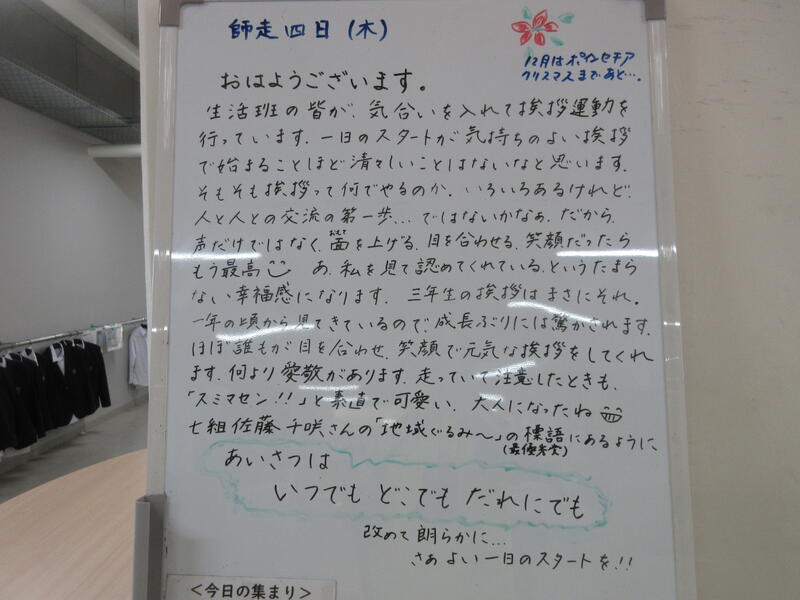 師走四日(木)
12月はポインセチア
クリスマスまであと…。
おはようございます。
生活班の皆が、気合いを入れて挨拶運動を
行っています。一日のスタートが気持ちのよい挨拶
で始まることほど清々しいことはないなと思います。
そもそも挨拶って何でやるのか。いろいろあるけれど、
人と人との交流の第一歩…ではないかなぁ。だから、
声だけではなく、面を上げる、目を合わせる、笑顔だったら
おもて
もう最高 あ、私を見て認めてくれている、というたまら
ない幸福感になります。三年生の挨拶はまさにそれ。
一年の頃から見てきているので、成長ぶりには驚かされます。
ほぼ誰もが目を合わせ、笑顔で元気な挨拶をしてくれ
ます。何より愛敬があります。走っていて注意したときも、
「スミマセン!!」と素直で可愛い。大人になったね
七組佐藤千咲さんの「地域ぐるみ〜」の標語にあるように、
(最優秀賞)
あいさつは
いつでも どこでも だれにでも
改めて朗らかに…
さぁよい一日のスタートを!!
<今日の集まり>